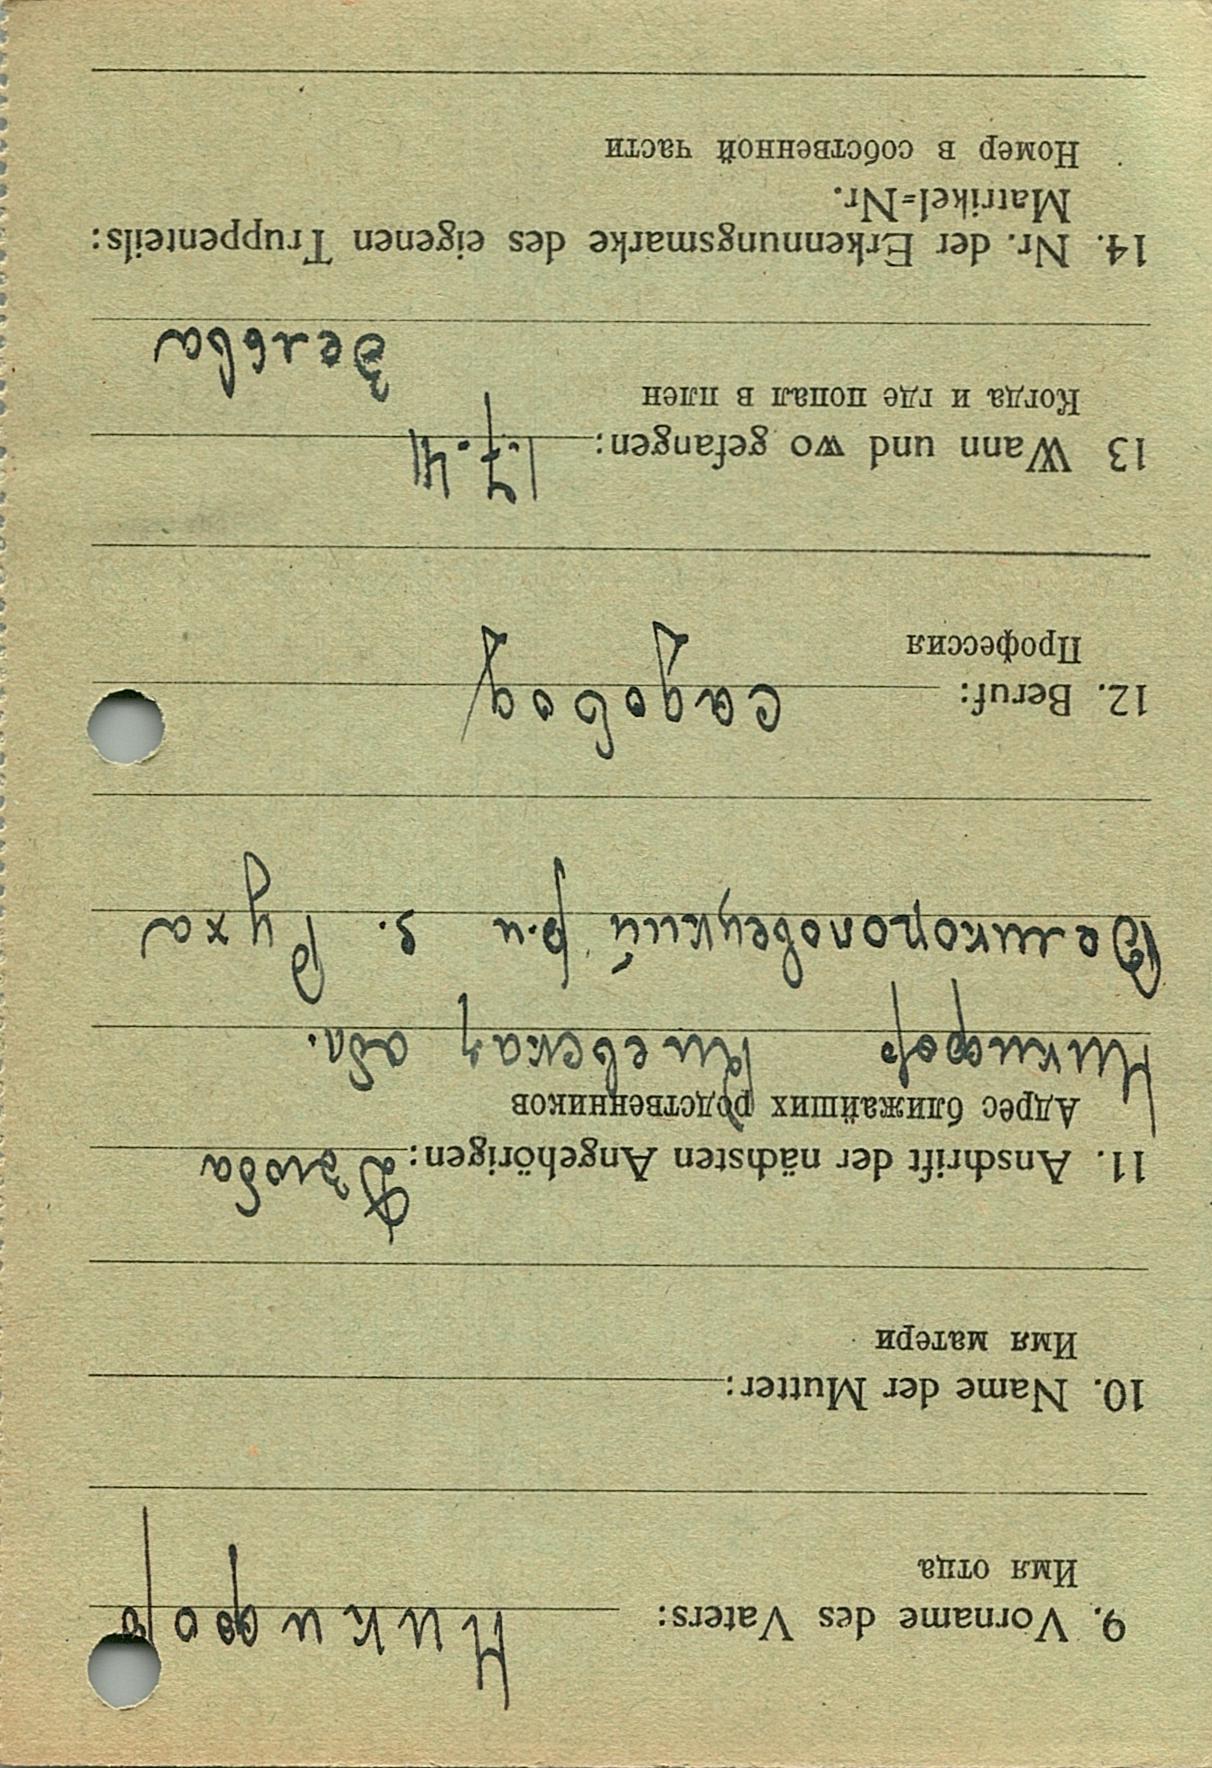 9. Vorname des Vaters: Никифор
Имя отца
10. Name der Mutter:
Имя матери
11. Anschrift der nächsten Angehörigen: Дзюба
Адрес ближайших родственников
Никифор Киевская обл.
Великополовецкий р-н с. Руха
12. Beruf: садовод
Профессия
13 Wann und wo gefangen: 1.7.41
Когда и где попал в плен
Зельва
14. Nr. der Erkennungsmarke des eigenen Truppenteils:
Matrikel=Nr.
Номер в собственной части